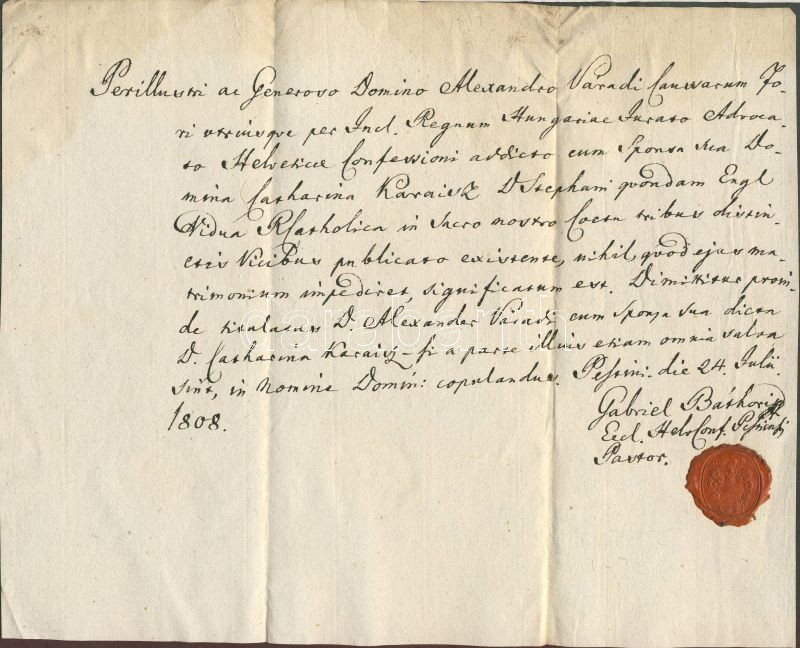 Perillustri ac Generoso Domino Alexandro Váradi Caussarum Fo-
ri utriusque per Incl. Regnum Hungariae Jurato Advoca-
to Helveticae Confessioni addicto cum Sponsa sua Do-
mina Catharina Karaisz D Stephani quondam Engl
Vidua RCatholica in Sacro nostro Coetu tribus distin-
ctis Vicibus publicato existente, nihil, quod ejus ma-
trimonium impediret, significatum est. Dimittitur proin-
de titulatus D. Alexander Váradi cum Sponsa sua dicta
D. Catharina Karaisz – si a parte illius etiam omnia salva
sint, in Nomine Domini: copulandus. Pestini die 24. Julii
1808.
Gabriel Báthori
Eccl. Helv. Conf. Pestinensis
Pastor.